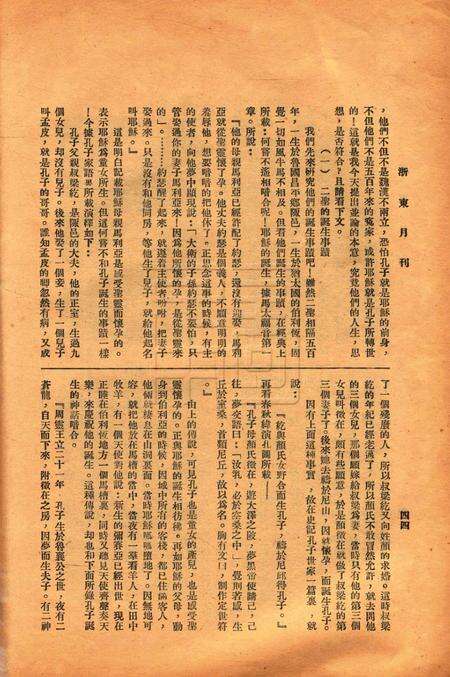 浙東月刊
四四
，他們不但不是魏漢不兩立，恐怕孔子就是耶穌的前身，
不但他們不是五百年來的冤家，或許耶穌就是孔子所轉世
的！這就是我今天提出並論的本意，究竟他們的人生，思
想，是否符合？且請看下文。
（一）二聖的誕生事蹟
我們先來研究他們的誕生事蹟吧！雖然二聖相隔五百
年，一生於魯國昌平鄉陬邑，一生於猶太國的伯利恆，固
覺一切如風牛馬不相及，但看他們誕生的事蹟，在經典上
所載，何嘗不遙遙暗合呢！耶穌的誕生，據馬太福音第一
章。所說：
『他的母親馬利亞已經許配了約瑟，還沒有迎娶，馬利
亞就從聖靈懷了孕。他丈夫約瑟是個義人，不願意明明的
羞辱他，想要暗暗的把他休了。正思念這事的時候，有主
的使者，向他夢中顯現說：『大衛的子孫約瑟不要怕，只
管娶過你的妻子馬利亞來！因為他所懷的孕，是從聖靈來
的』。……約瑟醒了起來，就遵着主使者的吩咐，把妻子
娶過來。只是沒有和他同房，等他生了兒子，就給他起名
叫耶穌。』
這是明白記載耶穌母親馬利亞是感受聖靈而懷孕的。
表示耶穌為童女所生。但這何嘗不和孔子誕生的事蹟一樣
！今據孔子家語所載演釋如下：
孔子父親叔梁紇，是陬邑的大夫，他的正室，生過九
個女兒，却沒有兒子。後來他娶了一個妾，生了一個兒子
叫孟皮，就是孔子的哥哥。誰知孟皮的脚忽然有病，又成
了一個殘廢的人，所以叔梁紇又向姓顏的求婚。這時叔梁
紇的年紀已經老邁了，所以顏氏不敢冒然允許，就去問他
的三個女兒，那個願嫁給叔梁紇為妻，當時只有他的第三個
女兒叫徵在，頗有些願意，於是顏徵在就做了叔梁紇的第
三個妻子了。後來她去禱於尼山，因就懷孕，而誕生孔子。
因有上面這種事實，故在史記孔子世家一篇裏，就
說：
『紇與顏氏女野合而生孔子，禱於尼邱得孔子。』
再看春秋緯演孔圖所載——
『孔子母顏氏徵在，遊大澤之陂，夢黑帝使請己，己
往，夢交語曰：「汝乳，必於空桑之中」，覺則若感，生
丘於空桑，首類尼丘，故以為名。胸有文曰，制作定世符
。』
由上的傳說，可見孔子也是童女的產兒，也是感受聖
靈懷孕的。正與耶穌的誕生相彷彿。再如耶穌的父母，動
身到伯利恆的時候，因城中所有的客棧，都已住滿客人，
他倆就棲息在山洞裏面。當時耶穌呱呱墮地了。因無地可
容，就把他放在馬槽的當中，當夜有一羣看羊人，在田中
牧羊，有一個天使對他說：新生的彌賽亞已經出世，現在
正睡在伯利恆地方一個馬槽裏，同時又聽見天使齊聲奏天
樂，來慶祝他的誕生。這種傳說，却也和下面所錄孔子誕
生的神話暗合。
『周靈王立二十一年 孔子生於魯襄公之世，夜有二
蒼龍，自天而下來，附徵在之房，因夢而生夫子。有二神